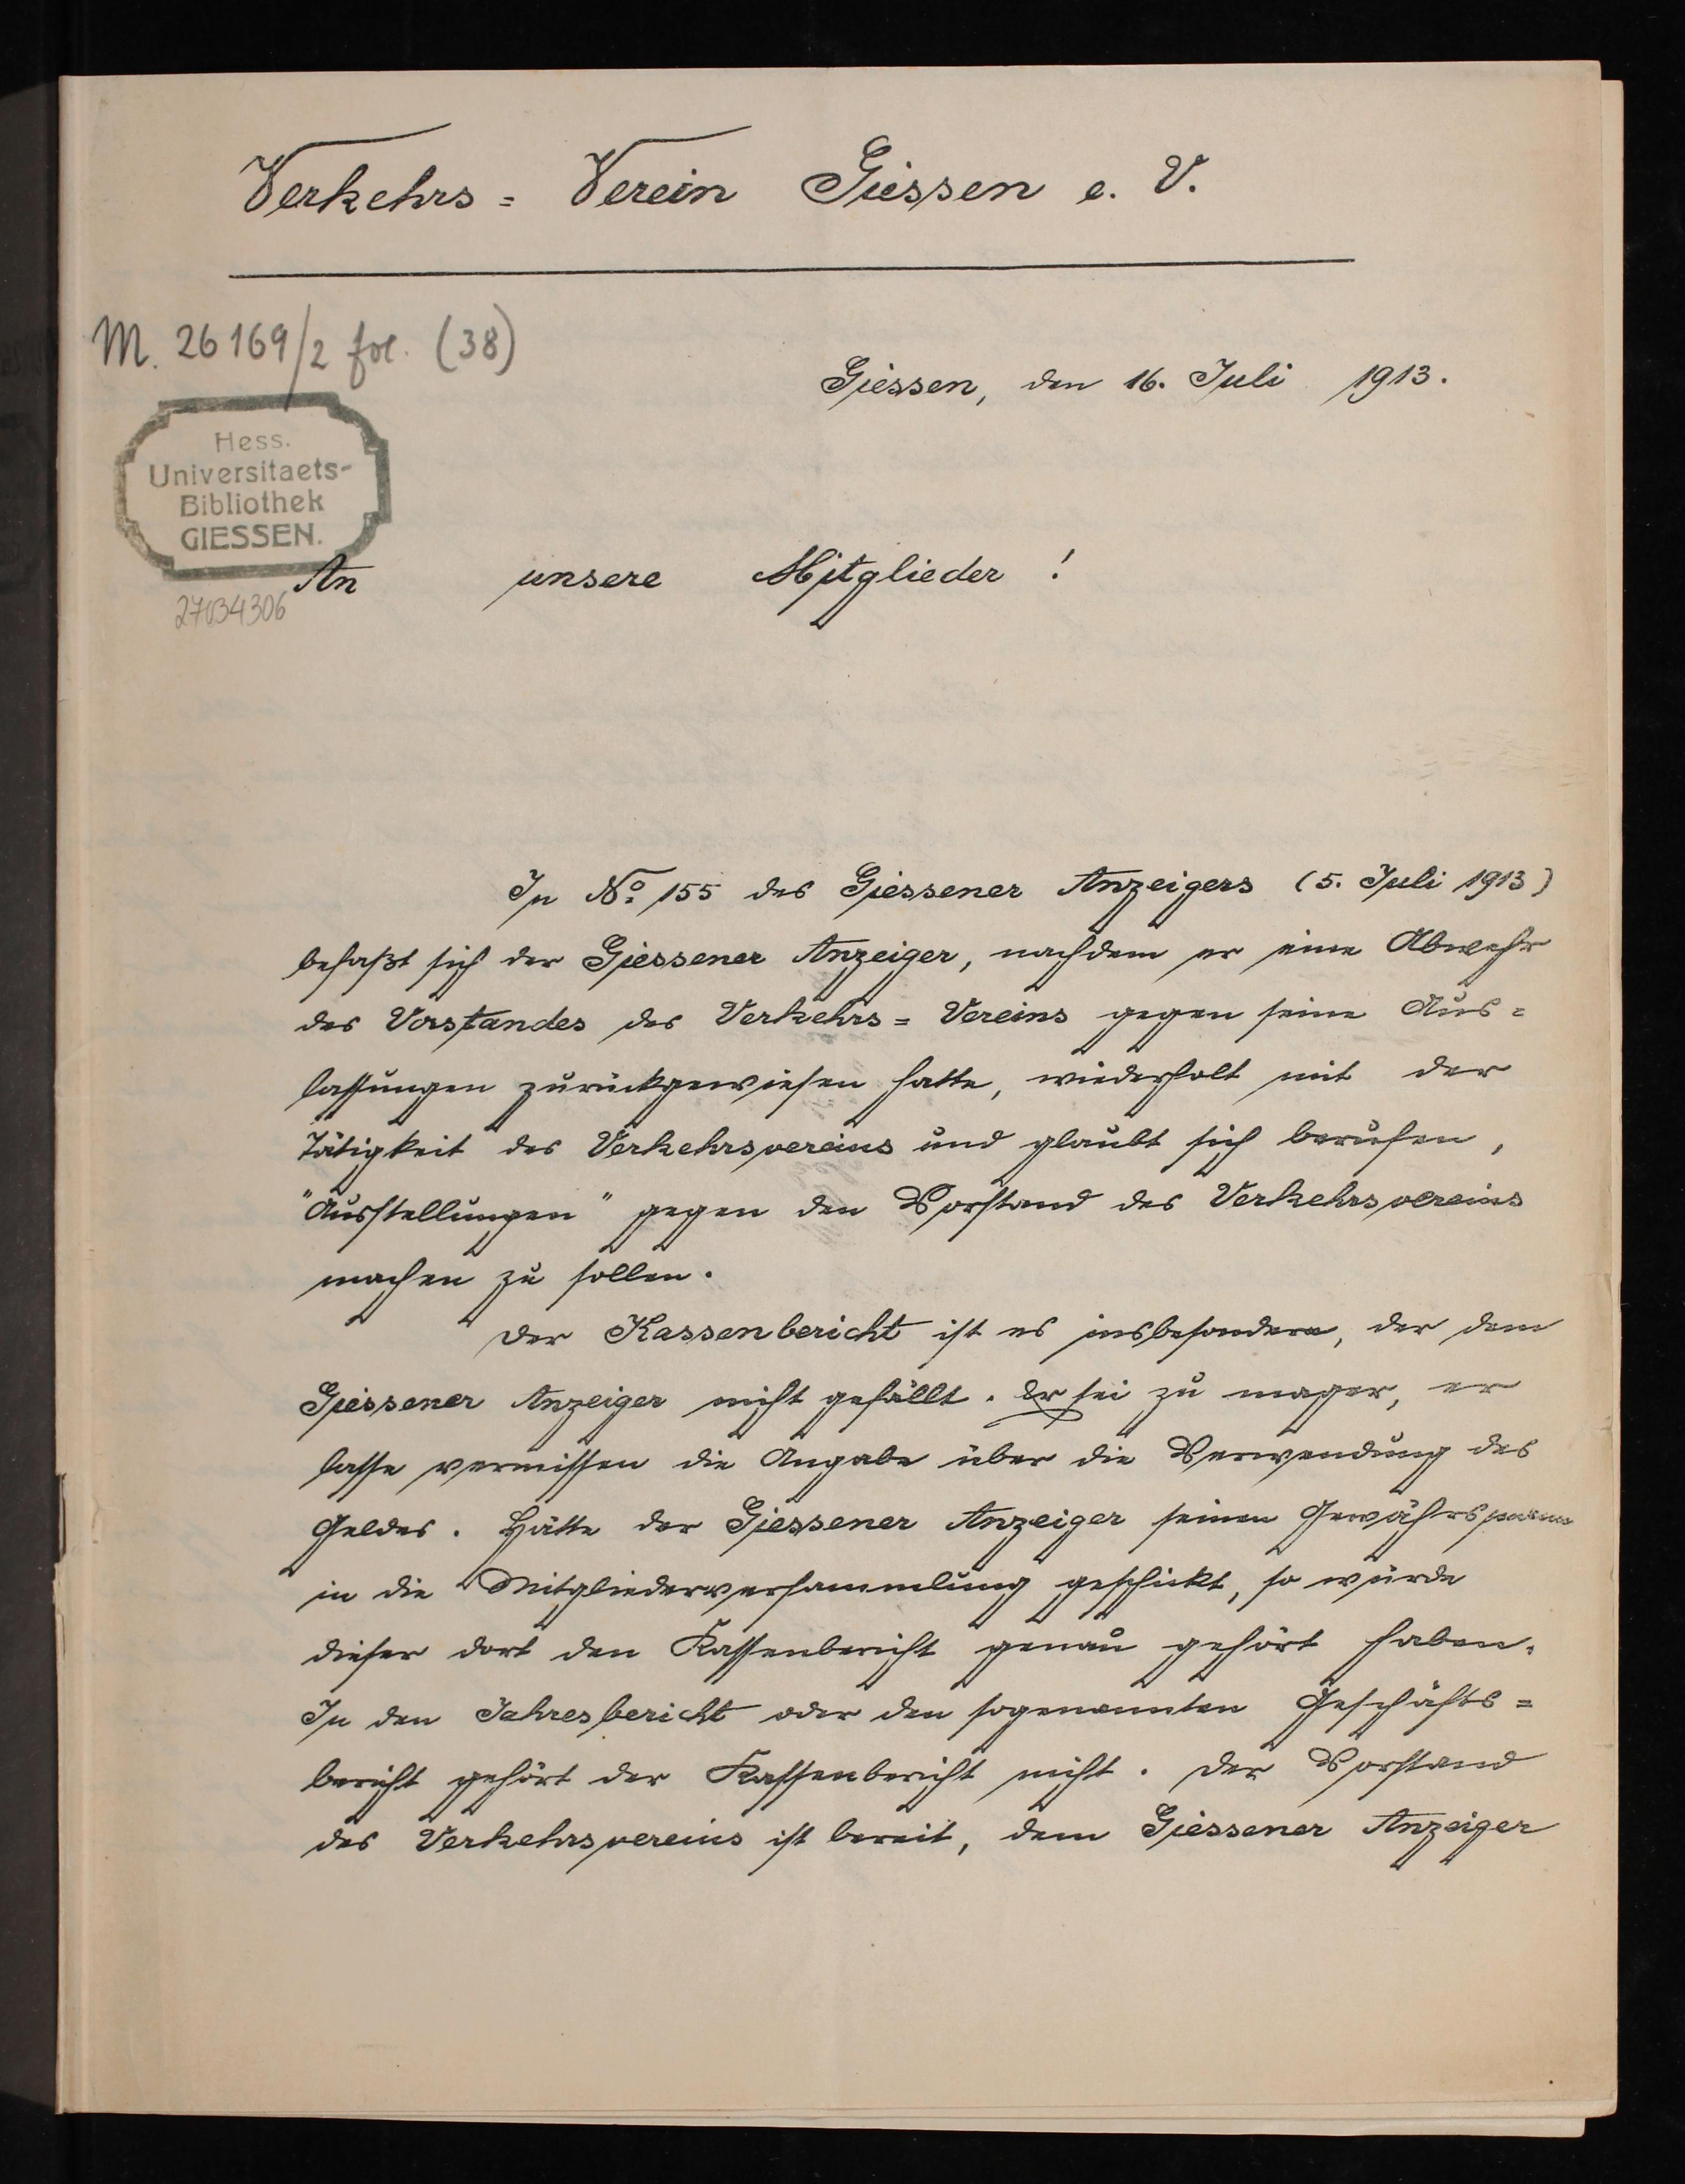 Verkehrs= Verein Giessen e. V.
M. 26169/2 fol. (38)
Giessen, den 16. Juli 1913.
Hess.
Universitaets-
Bibliothek
GIESSEN.
An unsere Mitglieder !
27034306
In No. 155 des Giessener Anzeigers (5. Juli 1913)
befaßt sich der Giessener Anzeiger, nachdem er eine Abwehr
des Vorstandes des Verkehrs= Vereins gegen seine Aus=
lassungen zurückgewiesen hatte, wiederholt mit der
Tätigkeit des Verkehrsvereins und glaubt sich berufen,
"Ausstellungen" gegen den Vorstand des Verkehrsvereins
machen zu sollen.
Der Kassenbericht ist es insbesondere, der dem
Giessener Anzeiger nicht gefällt. Er sei zu mager, er
lasse vermissen die Angabe über die Verwendung des
Geldes. Hätte der Giessener Anzeiger seinen
in die Mitgliederversammlung geschickt, so würde
dieser dort den Kassenbericht genau gehört haben.
In den Jahresbericht oder den sogenannten Geschäfts=
bericht gehört der Kassenbericht nicht. Der Vorstand
des Verkehrsvereins ist bereit, dem Giessener Anzeiger